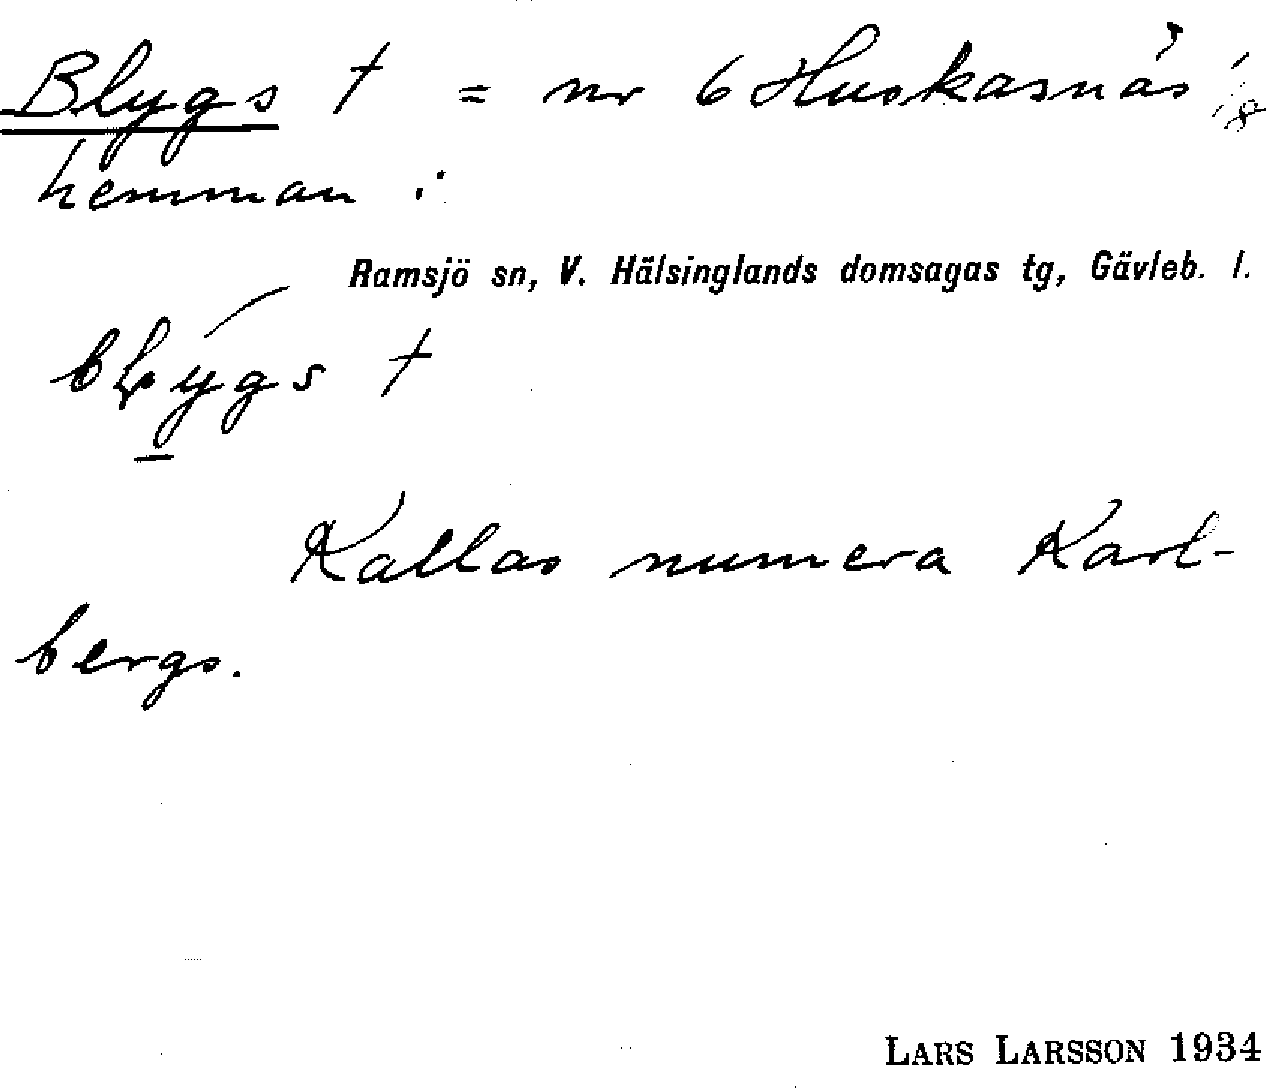 Blygs † = nr 6 Huskasnäs
hemman i
Ramsjö sn, V. Hälsinglands domsagas tg, Gävleb. l.
blygs †
Kallas numera Karl-
bergs.
LARS LARSSON 1934